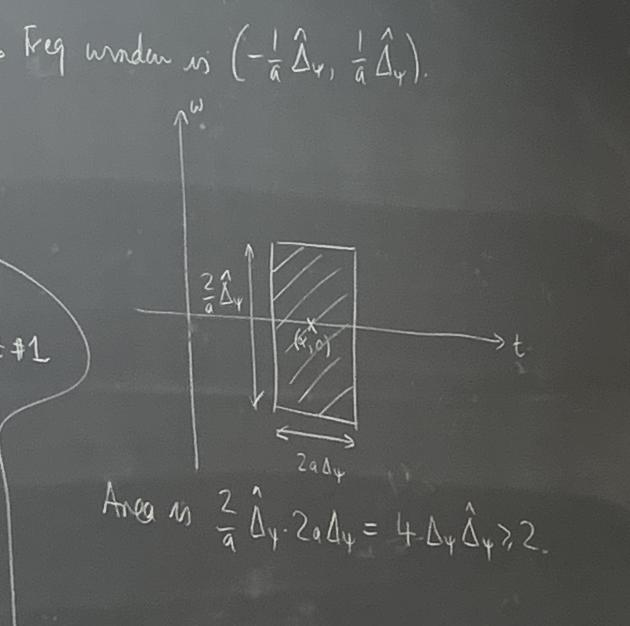 Freq window is (-1/a Δ̂ψ, 1/a Δ̂ψ).
ω
2/a Δ̂ψ
#1
t
2aΔψ
Area is 2/a Δ̂ψ · 2aΔψ = 4·Δψ Δ̂ψ ⩾ 2.